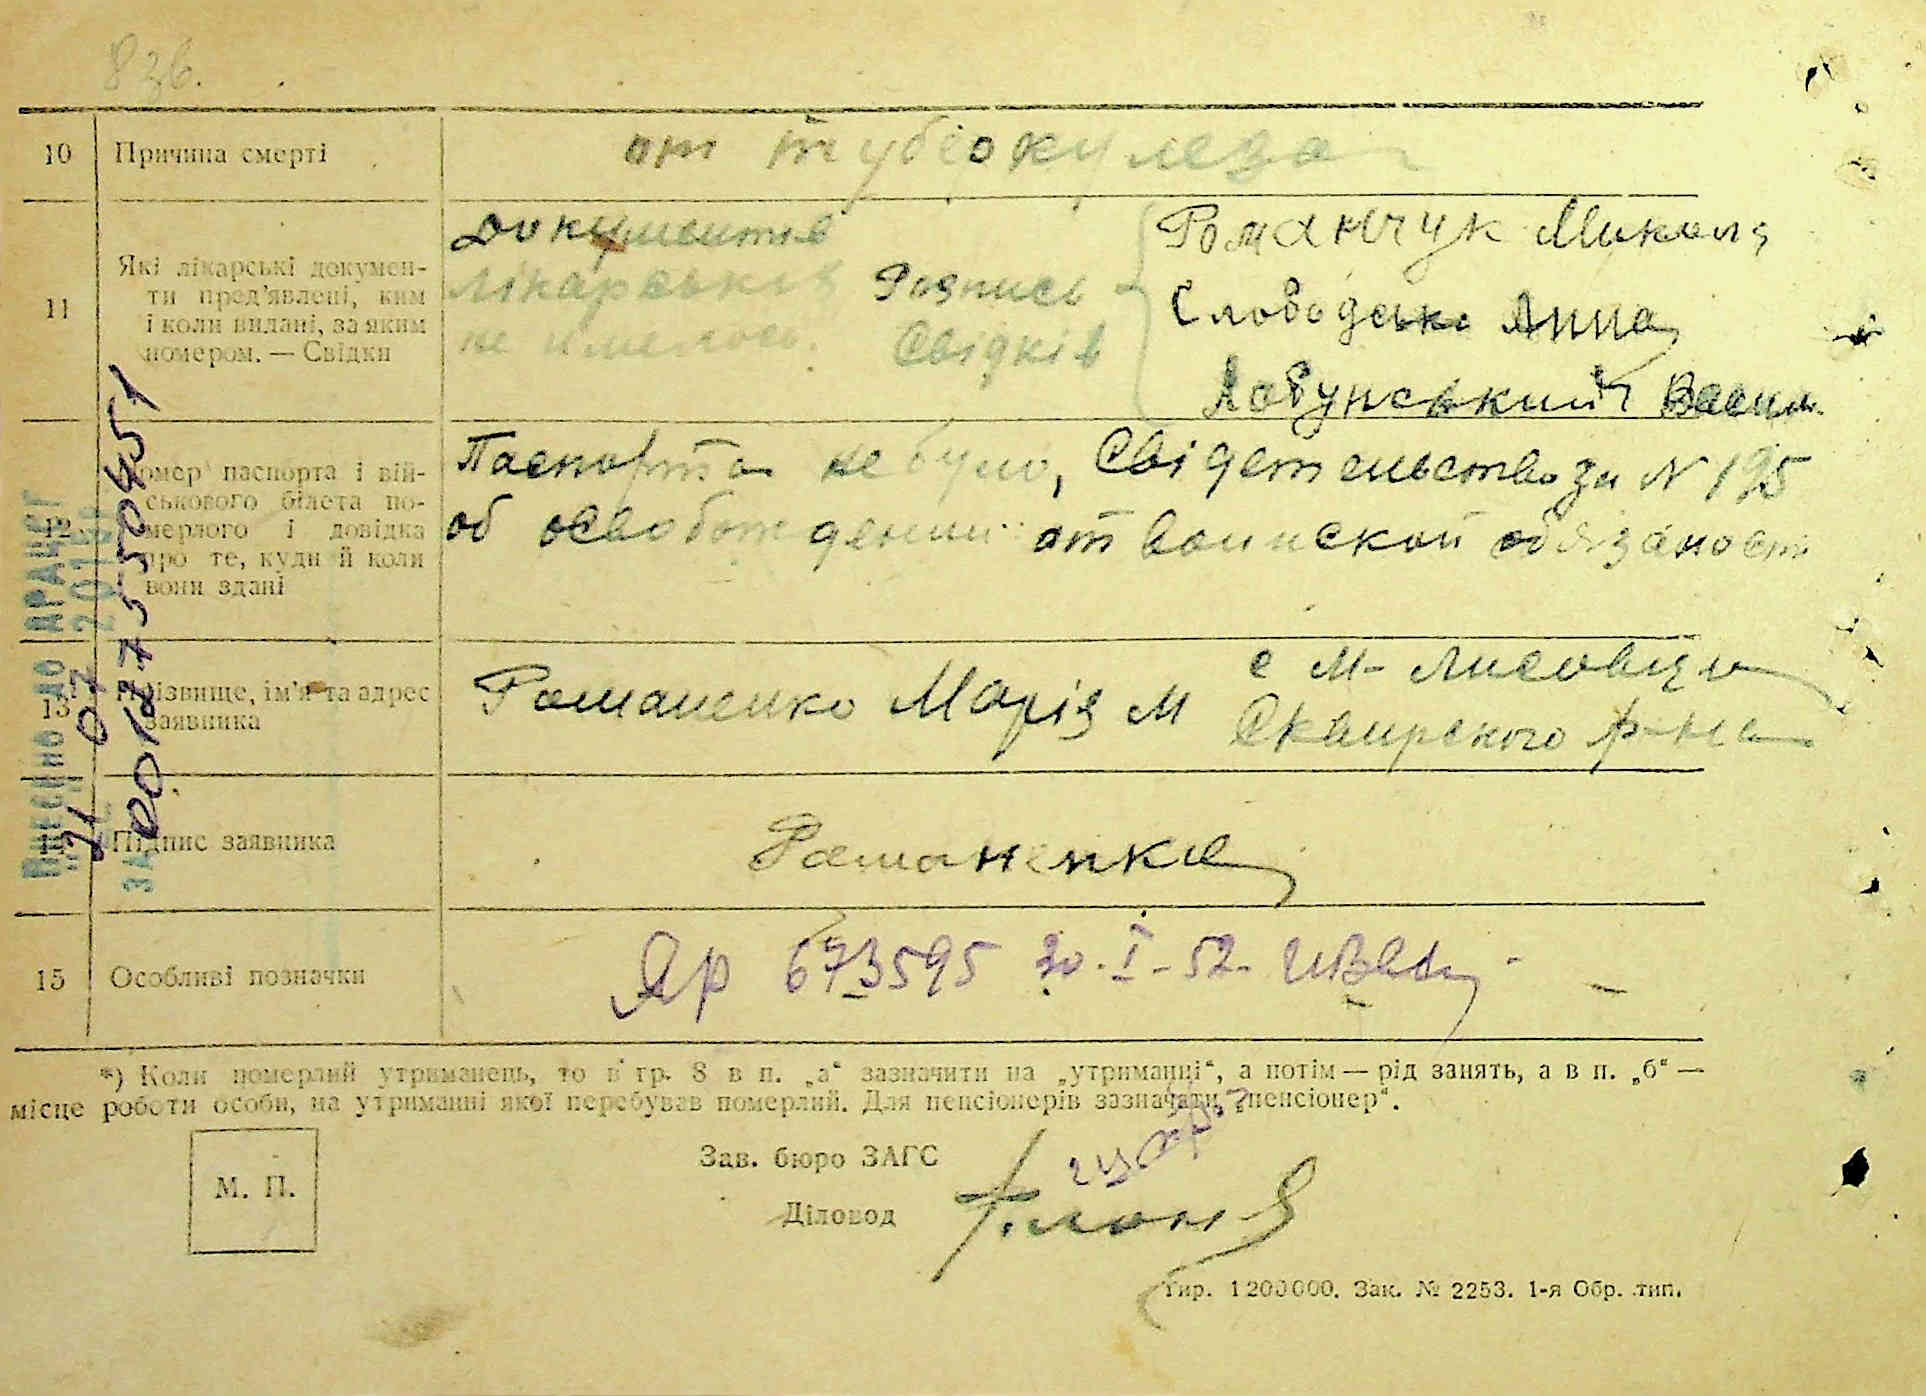 10 Причина смерті от туберкулеза
11 Які лікарські докумен-
ти пред'явлені, ким
і коли видані, за яким
номером. — Свідки
Документів
лікарських
не имелось.
Розпись
Свідків
Романчук Микола
Слободська Анна
Лобунський Васил
12 Номер паспорта і вій-
ськового білета по-
мерлого і довідка
про те, куди й коли
вони здані
Паспорта не було, Свідетельство за N 195
об освобождении от воинской обязаност
13 Прізвище, ім'я та адрес
заявника
Романенко Марія М
с М- Лисовцы
Сквирского р-на
14 Підпис заявника Романенко
15 Особливі позначки Яр 673595 30-I-52-
*) Коли померлий утриманець, то в гр. 8 в п. „а“ зазначити на „утриманці“, а потім — рід занять, а в п. „б“ —
місце роботи особи, на утриманні якої перебував померлий. Для пенсіонерів зазначати „пенсіонер“.
М. П.
Зав. бюро ЗАГС
Діловод
Тир. 1200000. Зак. № 2253. 1-я Обр. тип.
Внесено до ДРАЦСГ
21 07
за 00127550451